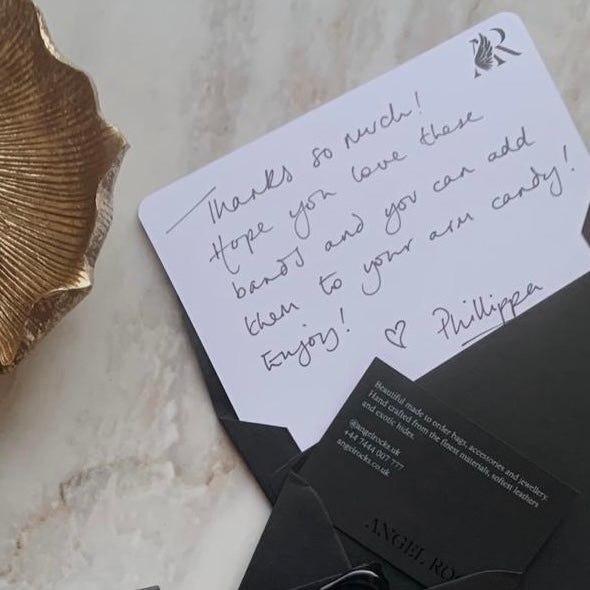 AR
Thanks so much!
Hope you love these
bands and you can add
them to your arm candy!
Enjoy! ♡ Phillippa
Beautiful made to order bags, accessories and jewellery.
Hand crafted from the finest materials, softest leathers
and exotic hides.
@angelrocks.uk
+44 7444 007 777
angelrocks.co.uk
ANGEL RO